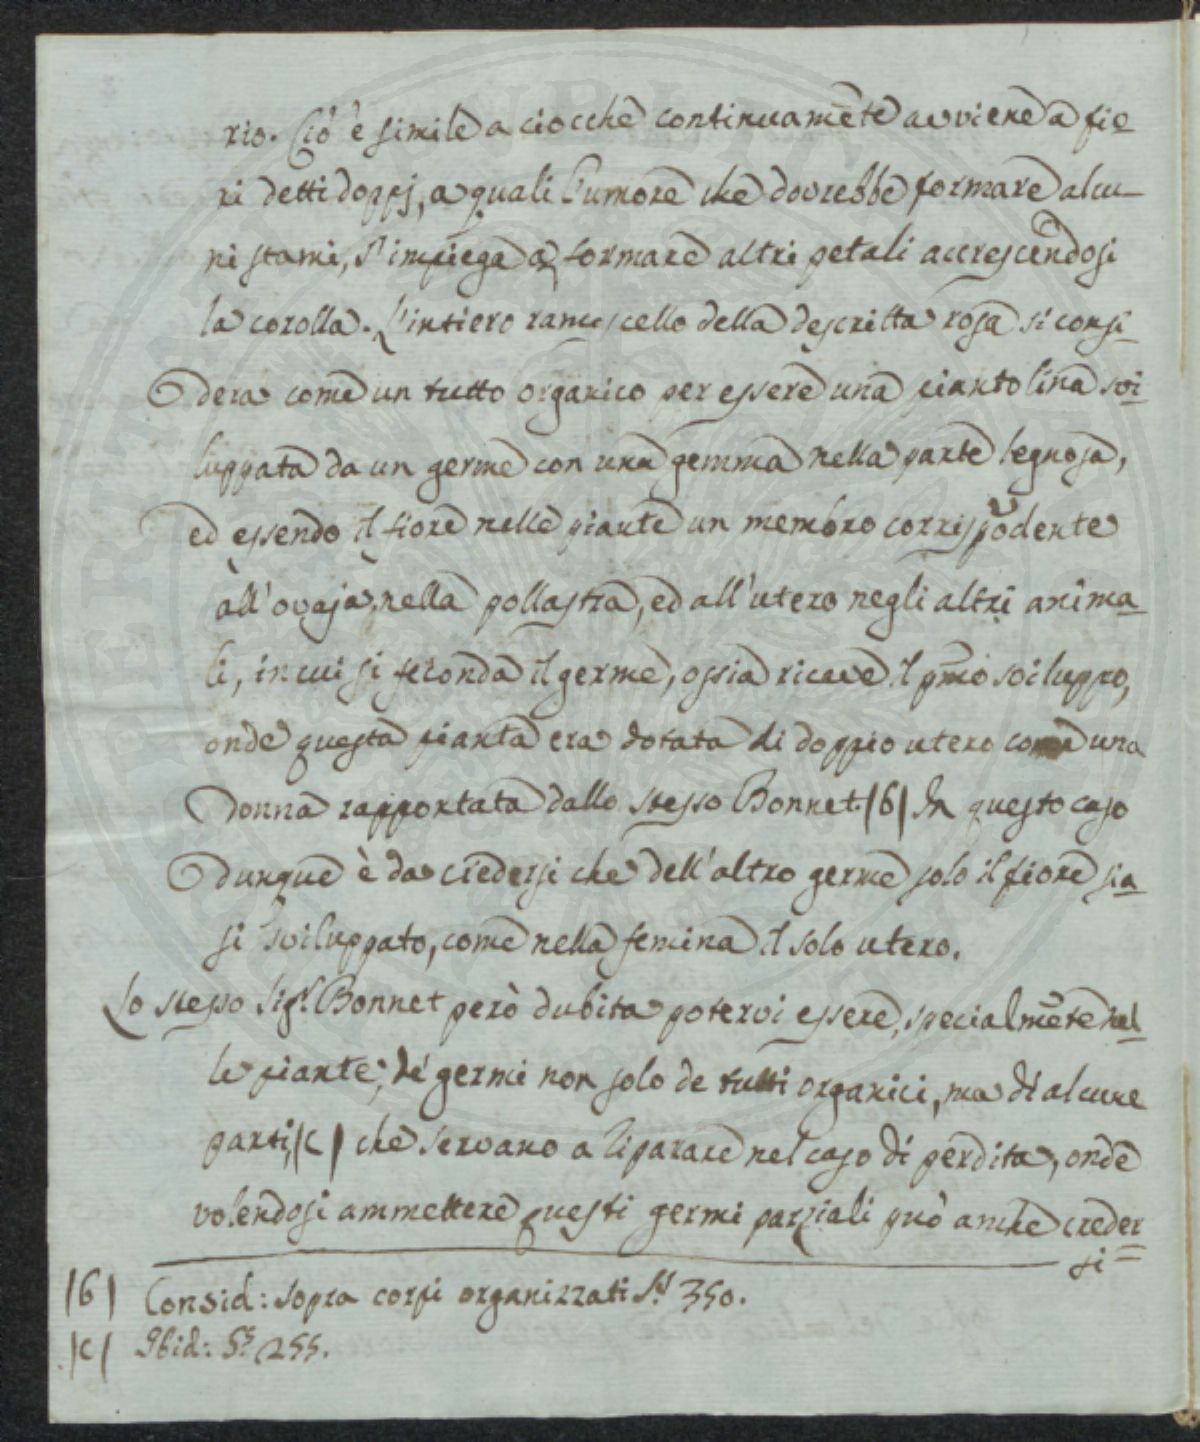 rio. Ciò è simile a ciocchè continuamẽte avviene a fio
ri detti doppj, a quali l'umore che dovrebbe formare alcu-
ni stami, s'impiega a formare altri petali accrescendosi
la corolla. L'intiero ramoscello della descritta rosa si consi
dera come un tutto organico per essere una piantolina svi
luppata da un germe con una gemma nella parte legnosa,
ed essendo il fiore nelle piante un membro corrispõdente
all'ovaja nella pollastra, ed all'utero negli altri anima
li, in cui si feconda il germe, ossia riceve il pmo sviluppo,
onde questa pianta era dotata di doppio utero come una
Donna rapportata dallo stesso Bonnet.|b| In questo caso
dunque è da credersi che dell'altro germe solo il fiore sia
si sviluppato, come nella femina il solo utero.
Lo stesso Sig.r Bonnet però dubita potervi essere, specialmẽte nel
le piante, de' germi non solo de tutti organici, ma di alcune
parti,|c| che servano a riparare nel caso di perdita, onde
volendosi ammettere questi germi parziali può anche creder
si
|b| Consid: sopra corpi organizzati §. 350.
|c| Ibid: §. 255.